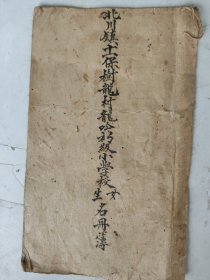 北川鎮十保樹龍村龍吟初級小學校女生名冊簿